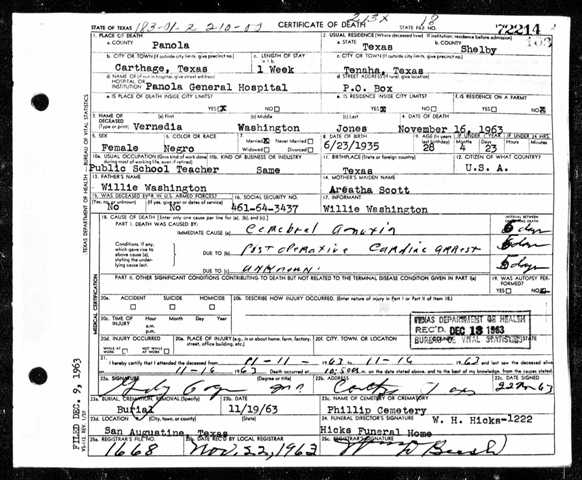 CERTIFICATE OF DEATH
STATE OF TEXAS 183-01-2 210-07 213x STATE FILE NO. 18 72214
1. PLACE OF DEATH 2. USUAL RESIDENCE (Where deceased lived. If institution, residence before admission)
a. COUNTY Panola a. STATE Texas b. COUNTY Shelby
b. CITY OR TOWN (If outside city limits, give precinct no.) c. LENGTH OF STAY c. CITY OR TOWN (If outside city limits, give precinct no.)
Carthage, Texas 1 Week Tenaha, Texas
d. NAME OF (If not in hospital, give street address) HOSPITAL OR INSTITUTION Panola General Hospital d. STREET ADDRESS (If rural, give location) P.O. Box
e. IS PLACE OF DEATH INSIDE CITY LIMITS? YES X NO e. IS RESIDENCE INSIDE CITY LIMITS? YES X NO f. IS RESIDENCE ON A FARM? YES NO X
3. NAME OF DECEASED (Type or print) (a) First (b) Middle (c) Last 4. DATE OF DEATH
Vernedia Washington Jones November 16, 1963
5. SEX 6. COLOR OR RACE 7. Married X Never Married Widowed Divorced 8. DATE OF BIRTH 9. AGE IF UNDER 1 YEAR IF UNDER 24 HRS.
Female Negro 6/23/1935 28 4 23
10a. USUAL OCCUPATION (Give kind of work done during most of working life, even if retired) 10b. KIND OF BUSINESS OR INDUSTRY 11. BIRTHPLACE (State or foreign country) 12. CITIZEN OF WHAT COUNTRY?
Public School Teacher Same Texas U.S.A.
13. FATHER'S NAME 14. MOTHER'S MAIDEN NAME
Willie Washington Areatha Scott
15. WAS DECEASED EVER IN U.S. ARMED FORCES? 16. SOCIAL SECURITY NO. 17. INFORMANT
(Yes, no, or unknown) (If yes, give war or dates of service)
No No 461-64-3437 Willie Washington
18. CAUSE OF DEATH [Enter only one cause per line for (a), (b), and (c).] INTERVAL BETWEEN
PART I. DEATH WAS CAUSED BY:
IMMEDIATE CAUSE (a) Cerebral anoxia 5 days
Conditions, if any, which gave rise to above cause (a), stating the underlying cause last.
DUE TO (b) Post operative Cardiac arrest 5 days
DUE TO (c) unknown 5 days
PART II. OTHER SIGNIFICANT CONDITIONS CONTRIBUTING TO DEATH BUT NOT RELATED TO THE TERMINAL DISEASE CONDITION GIVEN IN PART I(a) 19. WAS AUTOPSY PERFORMED? YES NO X
20a. ACCIDENT SUICIDE HOMICIDE 20b. DESCRIBE HOW INJURY OCCURRED. (Enter nature of injury in Part I or Part II of item 18.)
20c. TIME OF INJURY Hour Month Day Year
a.m.
p.m.
TEXAS DEPARTMENT OF HEALTH
REC'D. DEC 13 1963
BUREAU OF VITAL STATISTICS
20d. INJURY OCCURRED WHILE AT WORK NOT WHILE AT WORK 20e. PLACE OF INJURY (e.g. in or about home, farm, factory, street, office building, etc.) 20f. CITY, TOWN, OR LOCATION COUNTY STATE
21. I hereby certify that I attended the deceased from 11-11- 1963 11-16 1963 and last saw the deceased alive
11-16 1963 Death occurred at on the date stated above, and to the best of my knowledge, from the causes stated.
22a. SIGNATURE (Degree or title) 22b. ADDRESS 22c. DATE SIGNED
22 Nov 63
23a. BURIAL, CREMATION, REMOVAL (Specify) 23b. DATE 23c. NAME OF CEMETERY OR CREMATORY
Burial 11/19/63 Phillip Cemetery
23d. LOCATION (City, town, or county) (State) 24. FUNERAL DIRECTOR'S SIGNATURE W. H. Hicks-1222
San Augustine, Texas Hicks Funeral Home
25a. REGISTRAR'S FILE NO. 25b. DATE REC'D BY LOCAL REGISTRAR 25c. REGISTRAR'S SIGNATURE
1668 Nov. 22, 1963
TEXAS DEPARTMENT OF HEALTH—BUREAU OF VITAL STATISTICS
MEDICAL CERTIFICATION
FILED DEC. 9, 1963